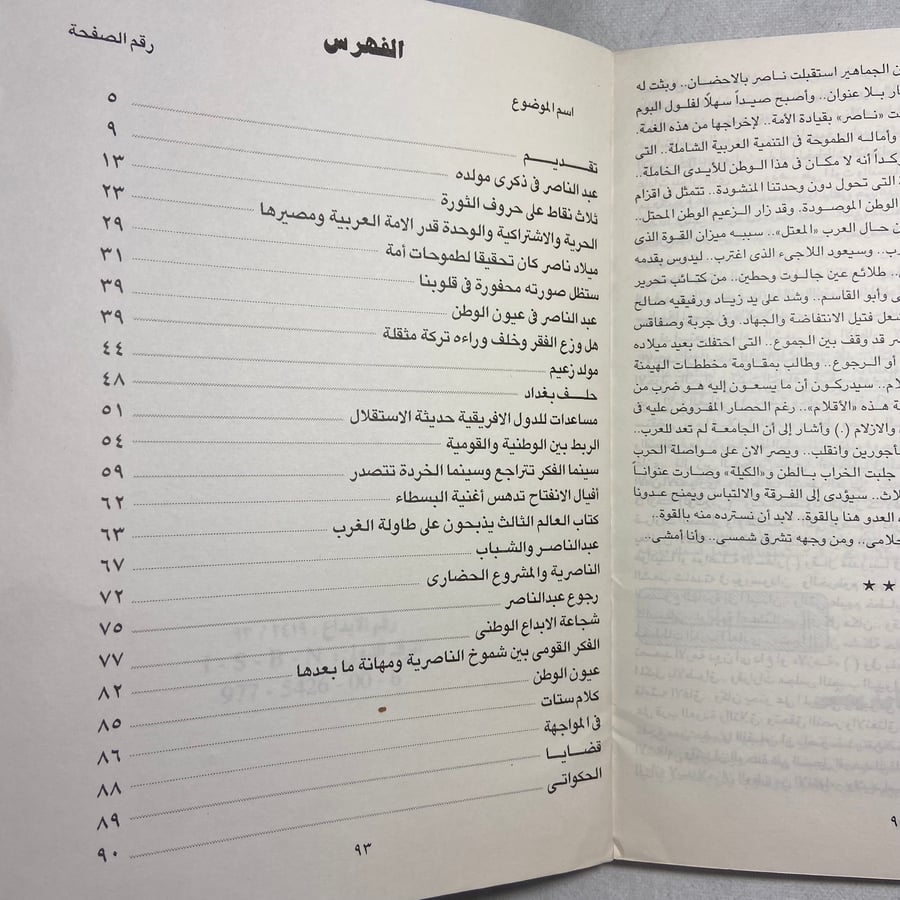 ن الجماهير استقبلت ناصر بالاحضان.. وبثت له
ار بلا عنوان.. وأصبح صيداً سهلاً لفلول البوم
ت «ناصر» بقيادة الأمة.. لإخراجها من هذه الغمة.
وأماله الطموحة فى التنمية العربية الشاملة.. التى
كداً أنه لا مكان فى هذا الوطن للأيدى الخاملة..
ة التى تحول دون وحدتنا المنشودة.. تتمثل فى اقزام
الوطن الموصودة. وقد زار الزعيم الوطن المحتل..
ن حال العرب «المعتل».. سببه ميزان القوة الذى
رب.. وسيعود اللاجىء الذى اغترب.. ليدوس بقدمه
.. طلائع عين جالوت وحطين.. من كتائب تحرير
ى وأبو القاسم.. وشد على يد زياد ورفيقيه صالح
شعل فتيل الانتفاضة والجهاد. وفى جربة وصفاقس
سر قد وقف بين الجموع.. التى احتفلت بعيد ميلاده
أو الرجوع.. وطالب بمقاومة مخططات الهيمنة
لام.. سيدركون أن ما يسعون إليه هو ضرب من
ة هذه «الأقلام».. رغم الحصار المفروض عليه فى
والازلام (.) وأشار إلى أن الجامعة لم تعد للعرب..
أجورين وانقلب.. ويصر الان على مواصلة الحرب
جلبت الخراب بالطن و«الكيلة» وصارت عنواناً
لاث.. سيؤدى إلى الفرقة والالتباس ويمنح عدونا
العدو هنا بالقوة.. لابد أن نسترده منه بالقوة..
حلامى.. ومن وجهه تشرق شمسى.. وأنا أمشى..
★ ★
الفهرس
اسم الموضوع رقم الصفحة
تقديــم ٥
عبد الناصر فى ذكرى مولده ٩
ثلاث نقاط على حروف الثورة ١٣
الحرية والاشتراكية والوحدة قدر الامة العربية ومصيرها ٢٣
ميلاد ناصر كان تحقيقا لطموحات أمة ٢٩
ستظل صورته محفورة فى قلوبنا ٣١
عبد الناصر فى عيون الوطن ٣٩
هل وزع الفقر وخلف وراءه تركة مثقلة ٣٩
مولد زعيم ٤٤
حلــف بغداد ٤٨
مساعدات للدول الافريقية حديثة الاستقلال ٥١
الربط بين الوطنية والقومية ٥٤
سينما الفكر تتراجع وسينما الخردة تتصدر ٥٩
أفيال الانفتاح تدهس أغنية البسطاء ٦٢
كتاب العالم الثالث يذبحون على طاولة الغرب ٦٣
عبدالناصر والشباب ٦٧
الناصرية والمشروع الحضارى ٧٢
رجوع عبدالناصر ٧٥
شجاعة الابداع الوطنى ٧٧
الفكر القومى بين شموخ الناصرية ومهانة ما بعدها ٨٢
عيون الوطن ٨٥
كلام ستات ٨٦
فى المواجهة ٨٨
قضايـا ٨٩
الحكواتى ٩٠
٩٣